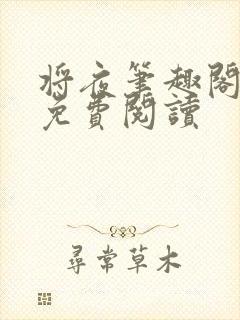 將夜筆趣閣
免費閱讀
尋常草木